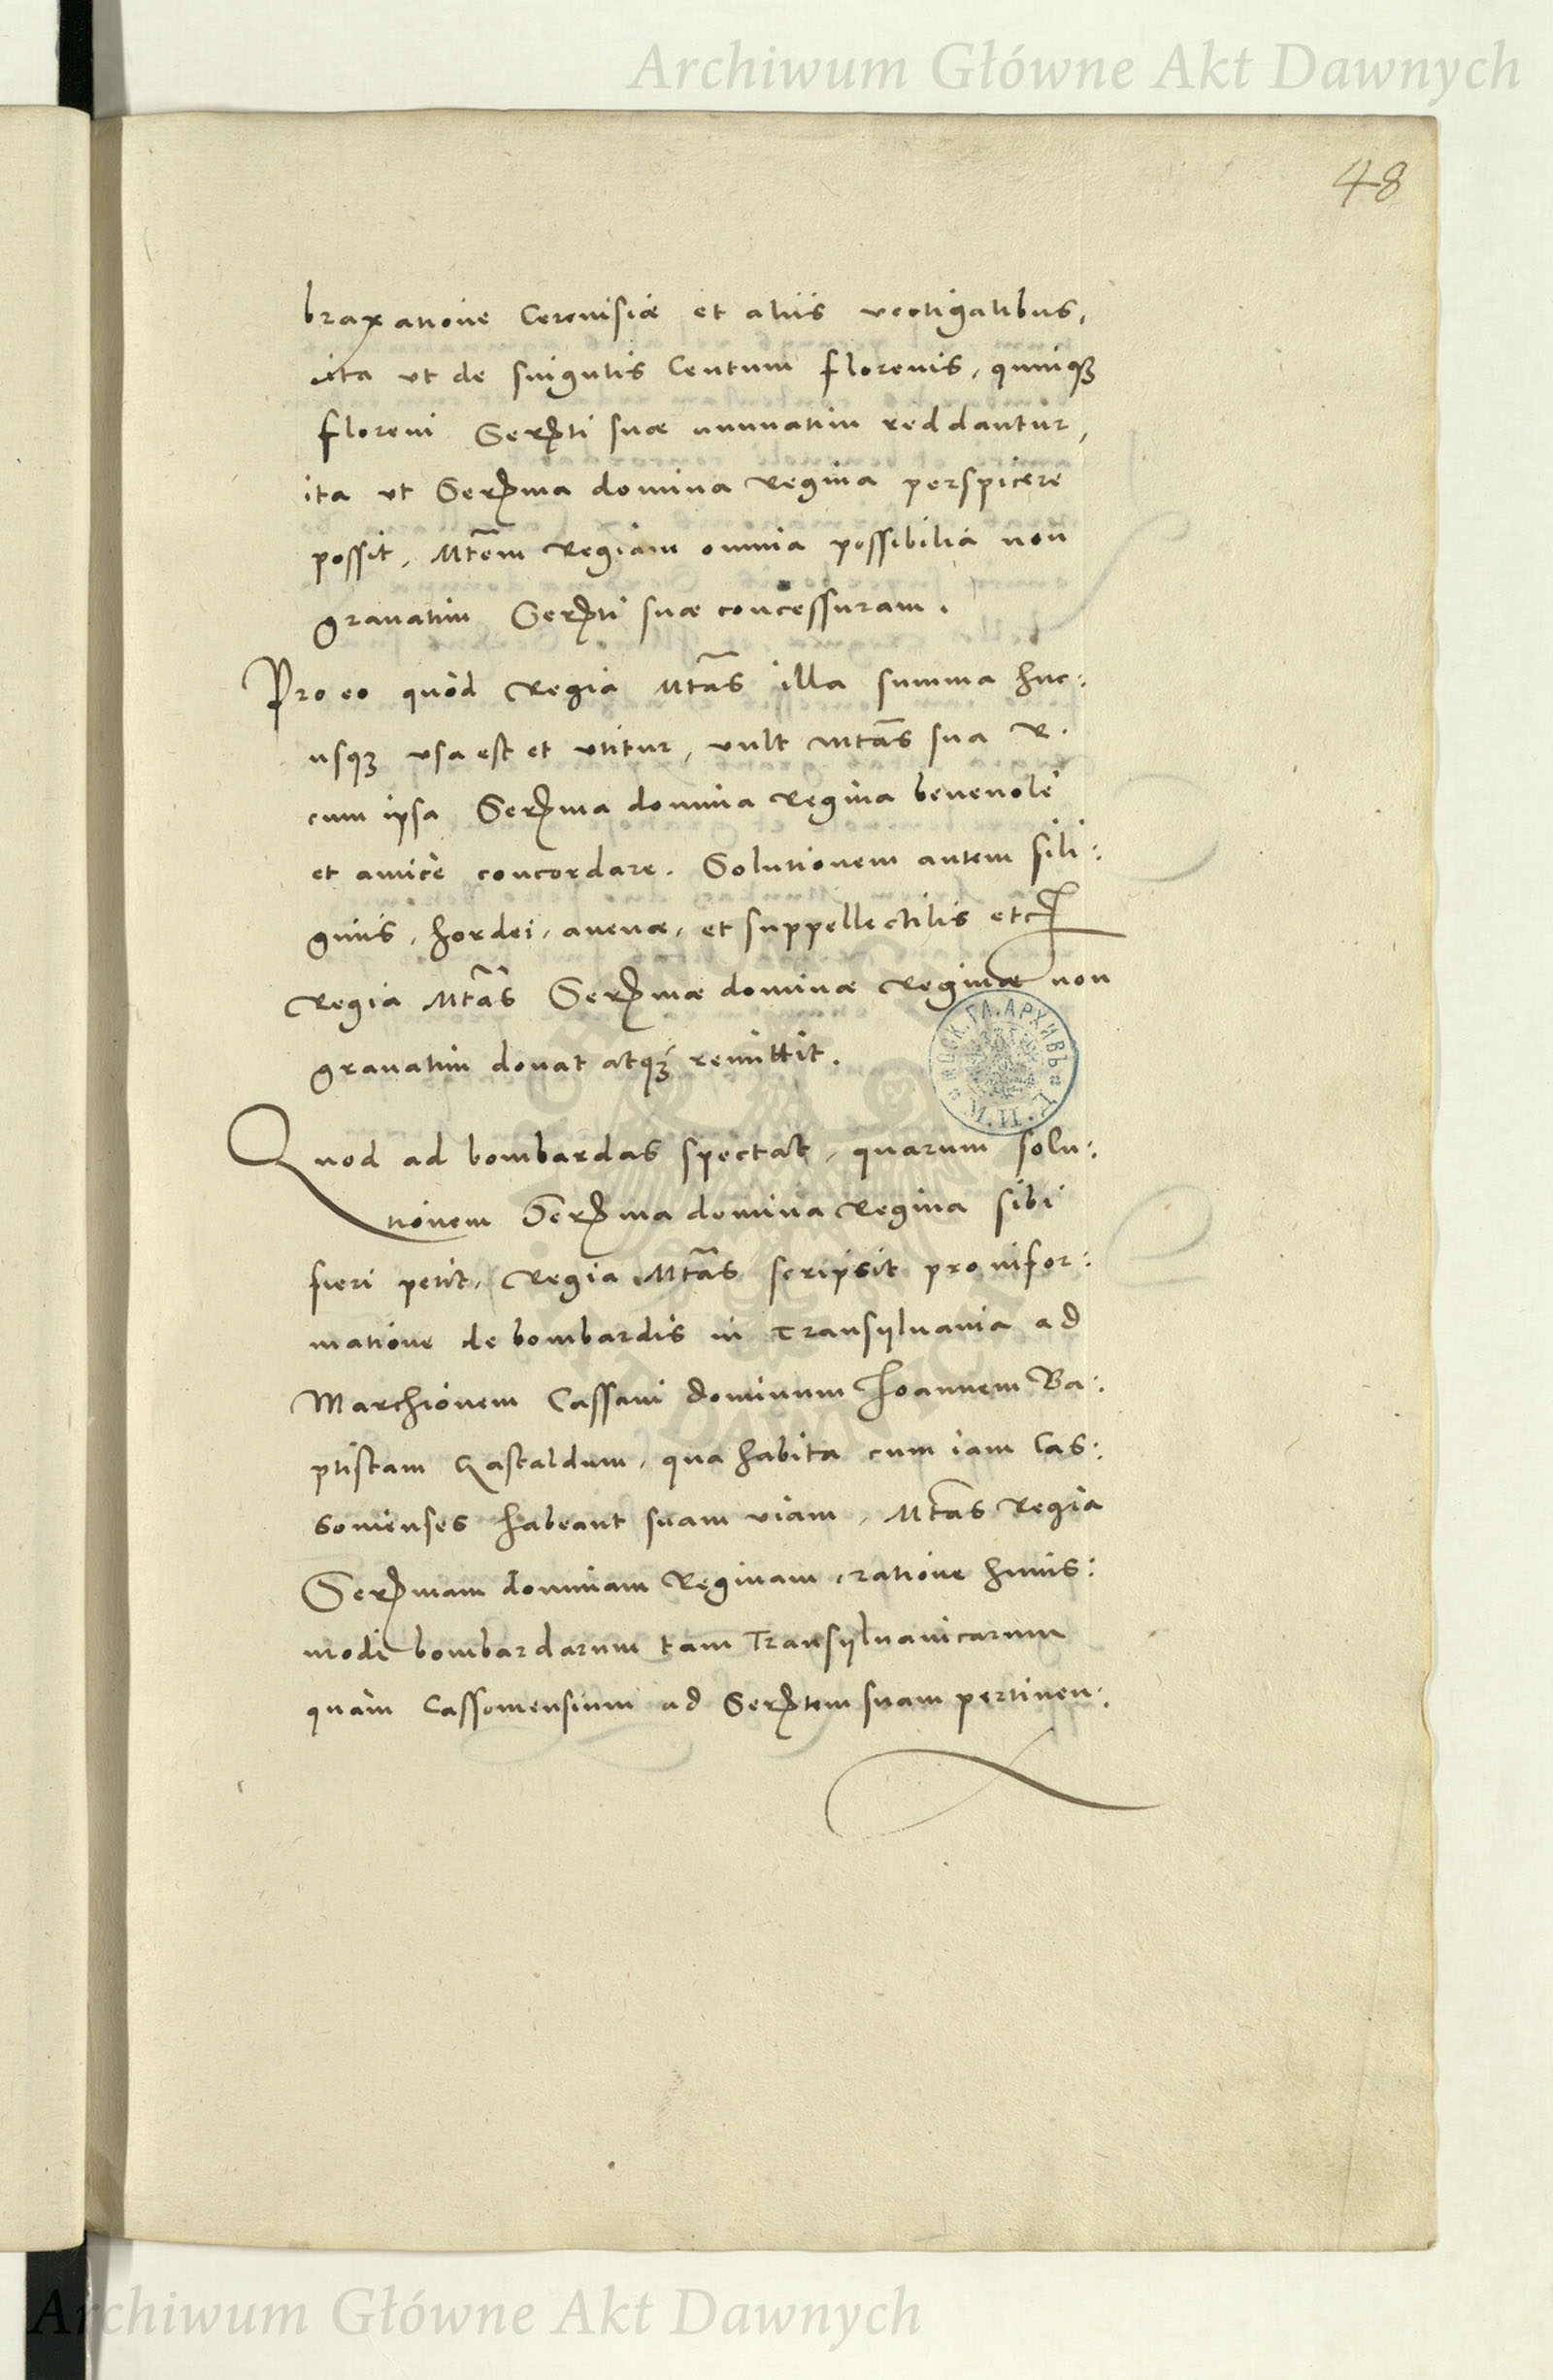 Archiwum Główne Akt Dawnych
48
braxatione Cerevisiæ et aliis vectigalibus,
ita vt de singulis Centum florenis, quinqꝫ
floreni Serꝑti suæ annuatim reddantur,
ita vt Serꝑma domina Regina perspicere
possit, Mtem̄ Regiam omnia possibilia non
grauatim Serꝑti suæ concessuram.
Pro eo quòd Regia Mtas̄ illa summa huc:
usqꝫ vsa est et vtitur, vult Mtas̄ sua R.
cum ipsa Serꝑma domina Regina beneuolè
et amicè concordare. Solutionem autem sili:
ginis, hordei, auenæ, et suppellectilis etc
Regia Mtas̄ Serꝑmæ dominæ Reginæ non
grauatim donat atqꝫ remittit.
МОСК. ГЛ. АРХИВЪ М. И. Д.
Quod ad bombardas spectat, quarum solu:
tionem Serꝑma domina Regina sibi
fieri petit, Regia Mtas̄ scripsit pro infor:
matione de bombardis in Transyluania ad
Marchionem Cassani dominum Joannem Ba:
ptistam Castaldum, qua habita cum iam Cas:
souienses habeant suam viam, Mtas̄ Regia
Serꝑmam dominam Reginam, ratione huius:
modi bombardarum tam Transyluanicarum
quàm Cassouiensium ad Serꝑtem suam pertinen:
Archiwum Główne Akt Dawnych